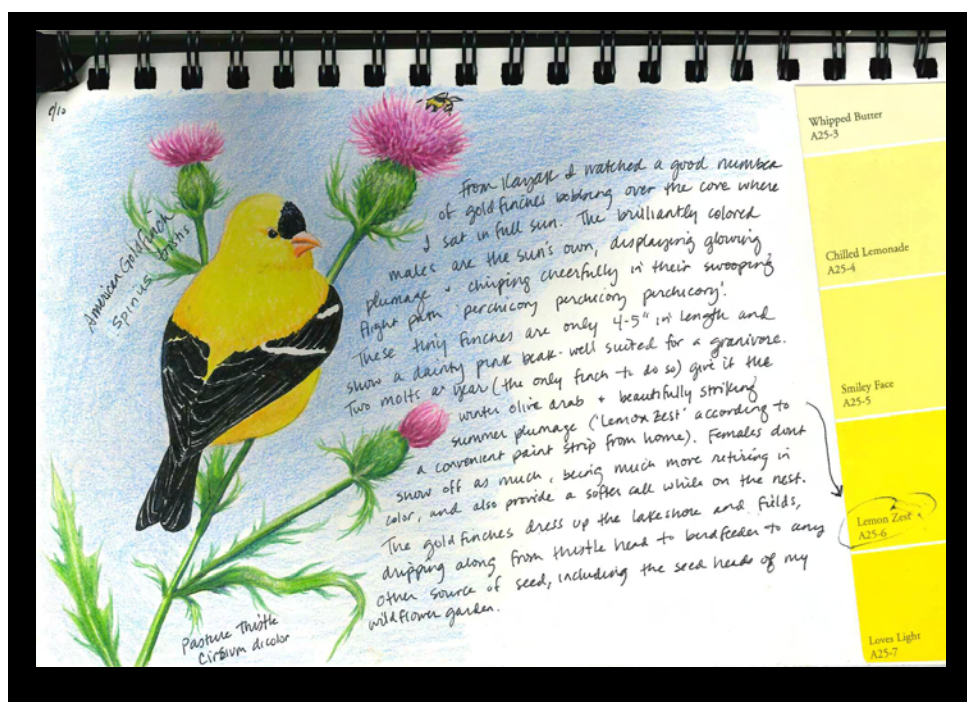 8/10
American Goldfinch
Spinus tristis
From Kayak I watched a good number
of goldfinches bobbing over the cove where
I sat in full sun. The brilliantly colored
males are the sun's own, displaying glowing
plumage + chirping cheerfully in their swooping
flight path 'perchicory perchicory perchicory'.
These tiny finches are only 4-5" in length and
show a dainty pink beak - well suited for a granivore.
Two molts a year (the only finch to do so) give it the
winter olive drab + beautifully striking
summer plumage ('Lemon Zest' according to
a convenient paint strip from home). Females dont
show off as much, being much more retiring in
color, and also provide a softer call while on the nest.
The goldfinches dress up the lakeshore and fields,
dripping along from thistle head to birdfeeder to any
other source of seed, including the seed heads of my
wildflower garden.
Pasture Thistle
Cirsium discolor
Whipped Butter
A25-3
Chilled Lemonade
A25-4
Smiley Face
A25-5
Lemon Zest
A25-6
Loves Light
A25-7